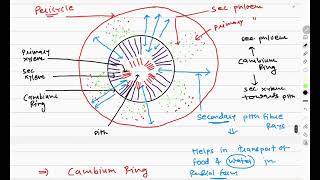 Pericycle
sec. phloem
Primary "
Primary
xylem
sec
xylem
Cambium
Ring
Pith
sec. phloem
Cambium
Ring
sec xylem
towards pith
Secondary pith
Rays
Helps in transport of
food & water in
Radial form
⇒ Cambium Ring